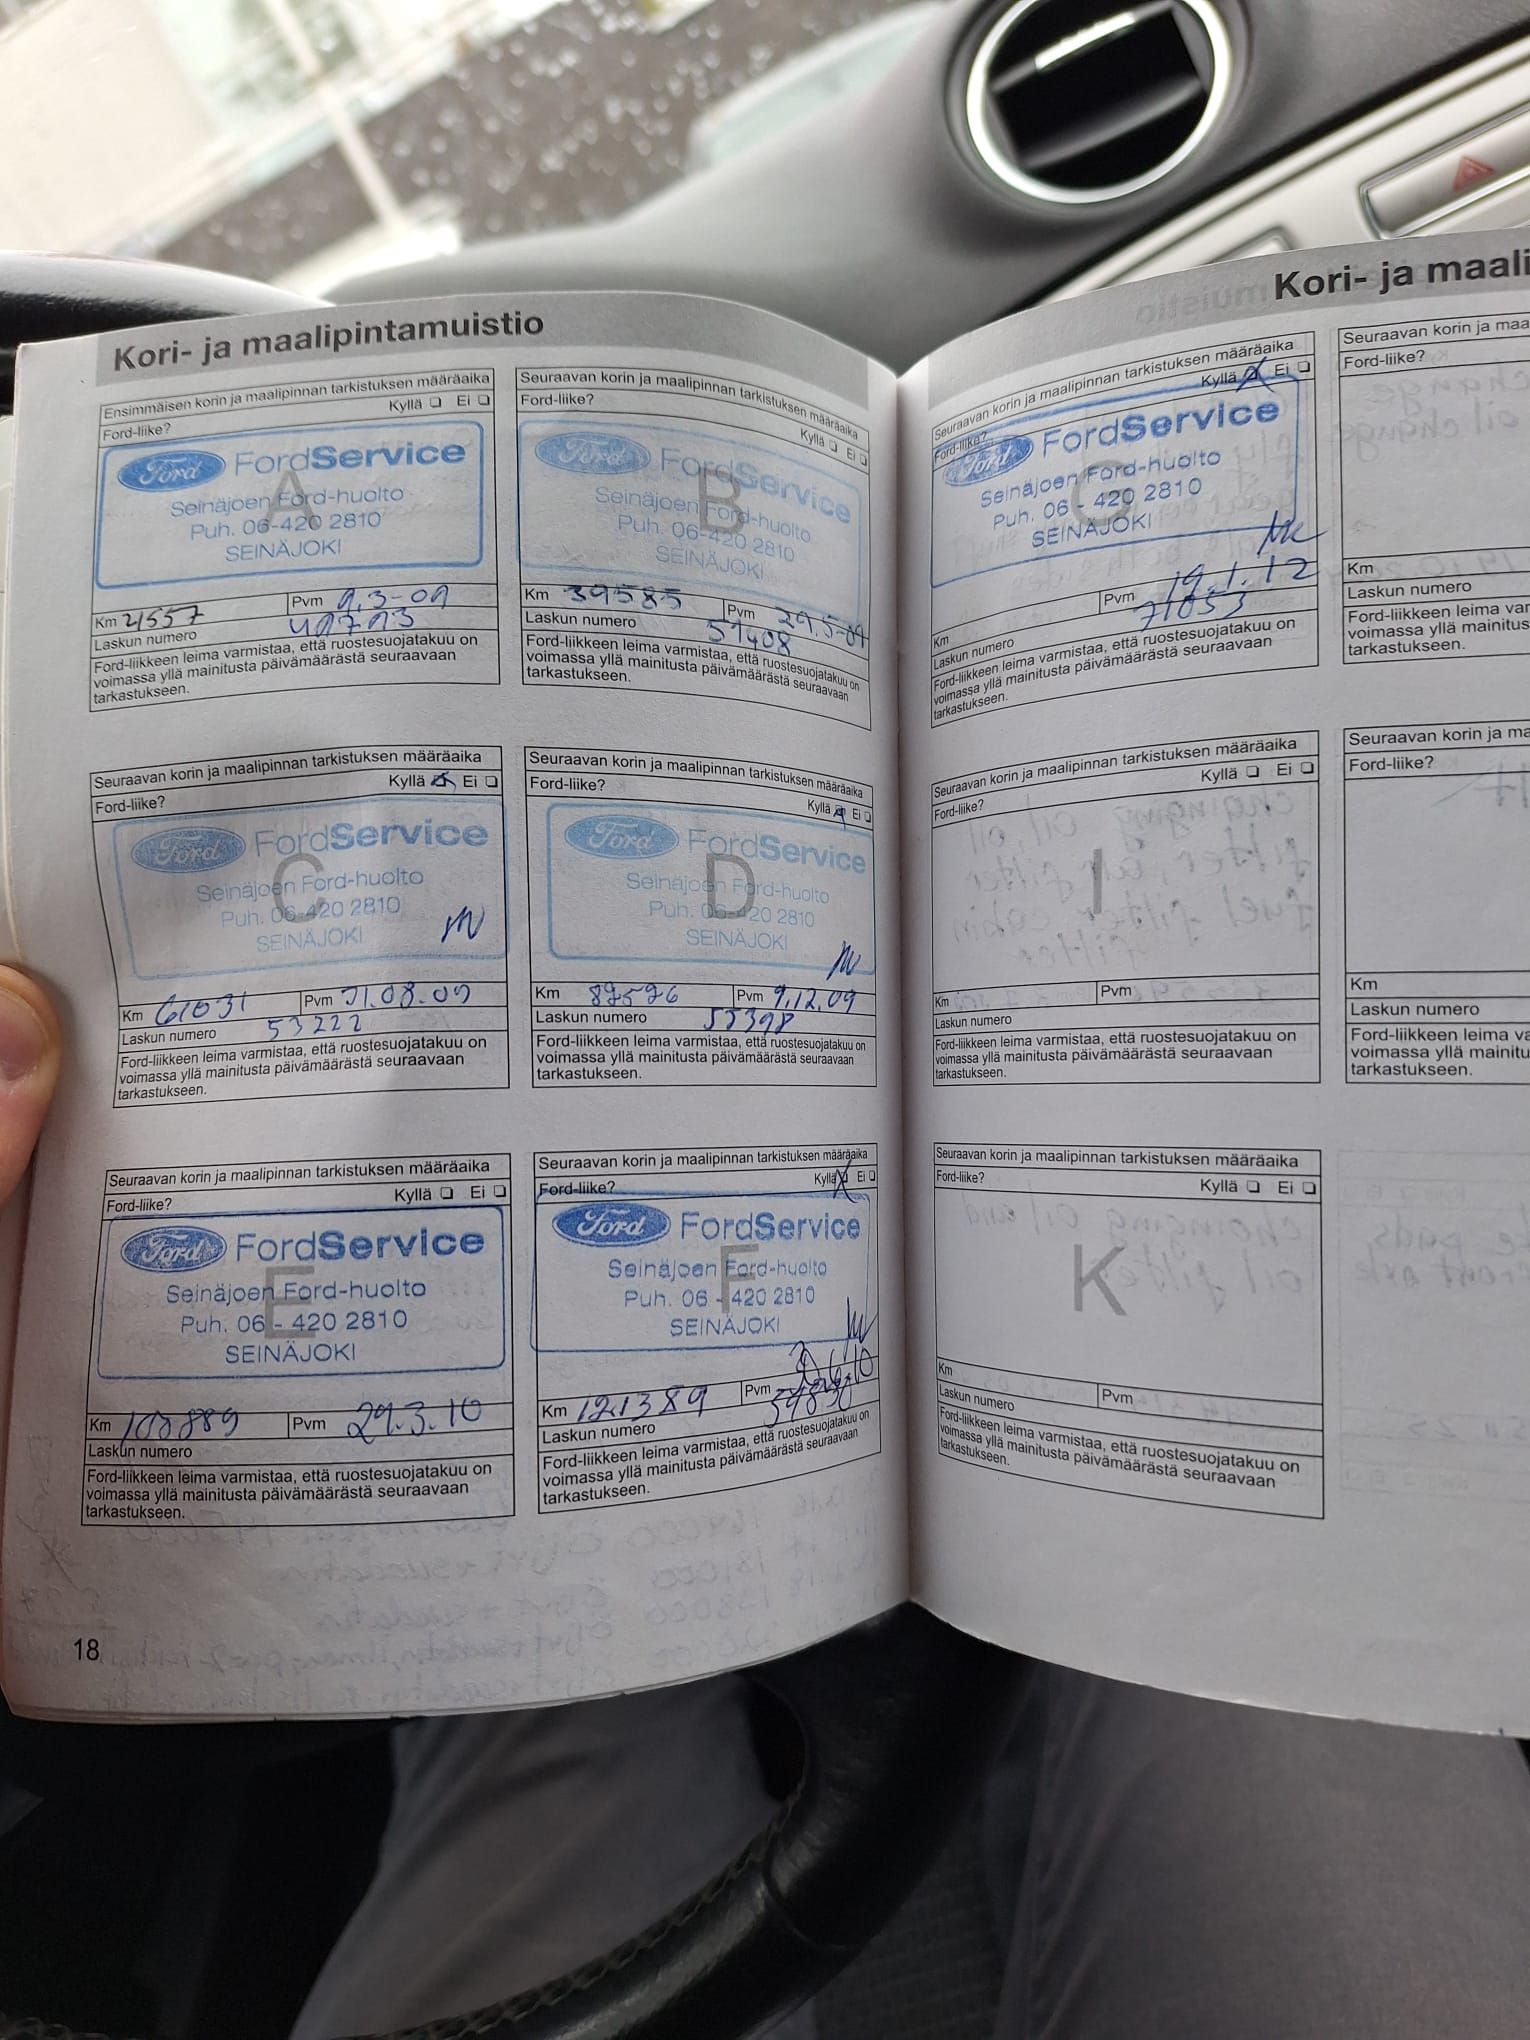 Kori- ja maalipintamuistio
Ensimmäisen korin ja maalipinnan tarkistuksen määräaika
Kyllä ❏ Ei ❏
Ford-liike?
Ford FordService
A
Seinäjoen Ford-huolto
Puh. 06-420 2810
SEINÄJOKI
Km 21557 Pvm 9.3-09
Laskun numero 49793
Ford-liikkeen leima varmistaa, että ruostesuojatakuu on
voimassa yllä mainitusta päivämäärästä seuraavaan
tarkastukseen.
Seuraavan korin ja maalipinnan tarkistuksen määräaika
Ford-liike?
Kyllä ❏ Ei ❏
Ford FordService
B
Seinäjoen Ford-huolto
Puh. 06-420 2810
SEINÄJOKI
Km 39585 Pvm 29.5-09
Laskun numero 51408
Ford-liikkeen leima varmistaa, että ruostesuojatakuu on
voimassa yllä mainitusta päivämäärästä seuraavaan
tarkastukseen.
Seuraavan korin ja maalipinnan tarkistuksen määräaika
Kyllä ❏ Ei ❏
Ford-liike?
Ford FordService
C
Seinäjoen Ford-huolto
Puh. 06-420 2810
SEINÄJOKI
Km 61031 Pvm 31.08.09
Laskun numero 53222
Ford-liikkeen leima varmistaa, että ruostesuojatakuu on
voimassa yllä mainitusta päivämäärästä seuraavaan
tarkastukseen.
Seuraavan korin ja maalipinnan tarkistuksen määräaika
Ford-liike?
Kyllä ❏ Ei ❏
Ford FordService
D
Seinäjoen Ford-huolto
Puh. 06-420 2810
SEINÄJOKI
Km Pvm 9.12.09
Laskun numero 55398
Ford-liikkeen leima varmistaa, että ruostesuojatakuu on
voimassa yllä mainitusta päivämäärästä seuraavaan
tarkastukseen.
Seuraavan korin ja maalipinnan tarkistuksen määräaika
Ford-liike? Kyllä ❏ Ei ❏
Ford FordService
E
Seinäjoen Ford-huolto
Puh. 06 - 420 2810
SEINÄJOKI
Km Pvm 29.3.10
Laskun numero
Ford-liikkeen leima varmistaa, että ruostesuojatakuu on
voimassa yllä mainitusta päivämäärästä seuraavaan
tarkastukseen.
Seuraavan korin ja maalipinnan tarkistuksen määräaika
Ford-liike? Kyllä ❏ Ei ❏
Ford FordService
F
Seinäjoen Ford-huolto
Puh. 06 - 420 2810
SEINÄJOKI
Km 121389 Pvm
Laskun numero
Ford-liikkeen leima varmistaa, että ruostesuojatakuu on
voimassa yllä mainitusta päivämäärästä seuraavaan
tarkastukseen.
18
Kori- ja maali
Seuraavan korin ja maalipinnan tarkistuksen määräaika
Kyllä ❏ Ei ❏
Ford-liike?
Ford FordService
G
Seinäjoen Ford-huolto
Puh. 06 - 420 2810
SEINÄJOKI
Km Pvm 19.1.12
Laskun numero 71053
Ford-liikkeen leima varmistaa, että ruostesuojatakuu on
voimassa yllä mainitusta päivämäärästä seuraavaan
tarkastukseen.
Seuraavan korin ja maa
Ford-liike?
Km
Laskun numero
Ford-liikkeen leima var
voimassa yllä mainitus
tarkastukseen.
Seuraavan korin ja maalipinnan tarkistuksen määräaika
Ford-liike? Kyllä ❏ Ei ❏
I
Km Pvm
Laskun numero
Ford-liikkeen leima varmistaa, että ruostesuojatakuu on
voimassa yllä mainitusta päivämäärästä seuraavaan
tarkastukseen.
Seuraavan korin ja ma
Ford-liike?
Km
Laskun numero
Ford-liikkeen leima va
voimassa yllä mainitu
tarkastukseen.
Seuraavan korin ja maalipinnan tarkistuksen määräaika
Ford-liike? Kyllä ❏ Ei ❏
K
Km Pvm
Laskun numero
Ford-liikkeen leima varmistaa, että ruostesuojatakuu on
voimassa yllä mainitusta päivämäärästä seuraavaan
tarkastukseen.